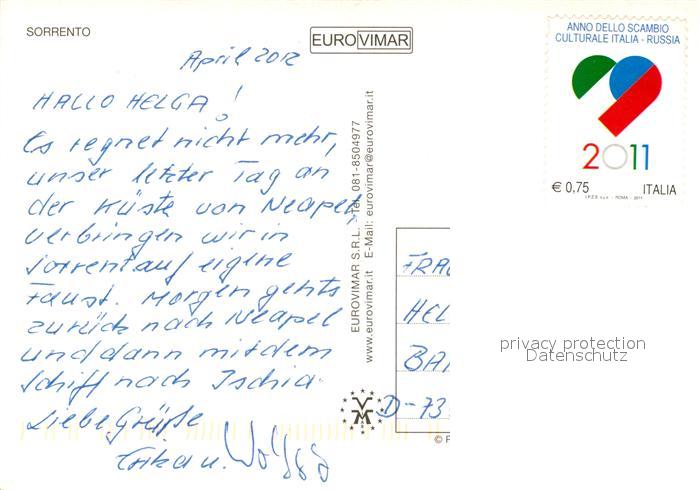 SORRENTO
EUROVIMAR
ANNO DELLO SCAMBIO
CULTURALE ITALIA - RUSSIA
2011
€ 0,75 ITALIA
I.P.Z.S. S.p.A. - ROMA - 2011
April 2012
HALLO HELGA!
Es regnet nicht mehr,
unser letzter Tag an
der Küste von Neapel,
verbringen wir in
Sorrent auf eigene
Faust. Morgen gehts
zurück nach Neapel
und dann mit dem
Schiff nach Ischia.
Liebe Grüße
Erika u.
EUROVIMAR S.R.L. - Tel. 081-8504977
www.eurovimar.it E-Mail: eurovimar@eurovimar.it
VM
FRA
HEL
BA
D-73
privacy protection
Datenschutz